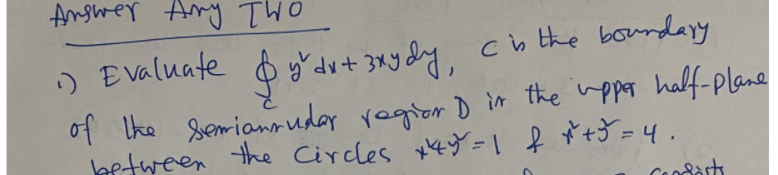 Answer Any TWO
1) Evaluate ∮_C y² dx + 3xy dy, C is the boundary
of the semiannudar region D in the upper half-plane
between the Circles x²+y²=1 & x²+y²=4.